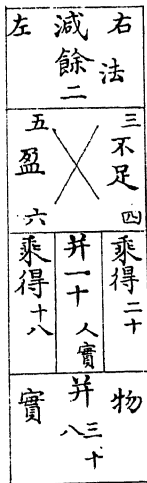 右法
減餘二
左
三不足四
五盈六
乘得二十
并一十人實
乘得十八
物
并三十八
實